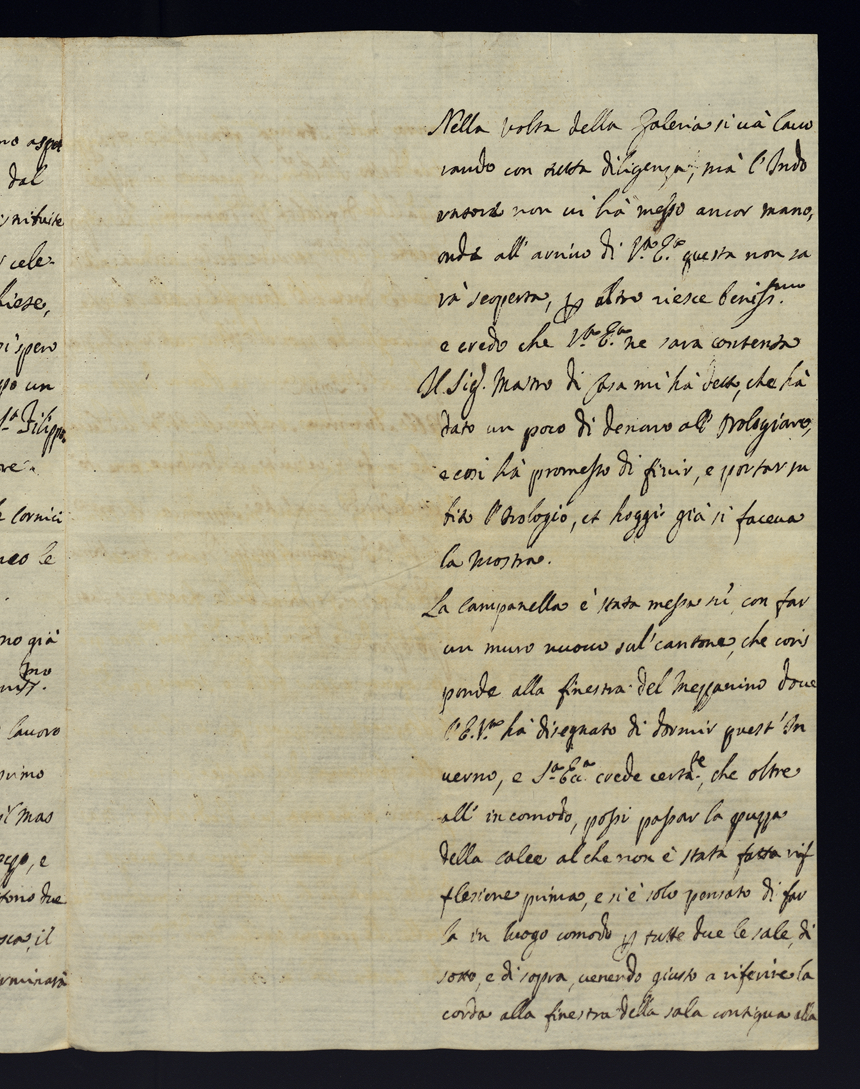 no aspet
dal
cele-
hiese,
si spero
po un
Sª Filippo
re.
cornici
neo le
no già
lavoro
primo
il mas
e
tono due
il
rminarà
Nella volta della Galeria si và lavo
rando con tutta diligenza, mà l'Indo
ratore non vi hà messo ancor mano,
onde all'arrivo di V.ra E. questa non sa
rà scoperta, p altro riesce beniss.mo
e credo che V.ra E. ne sara contenta
Il Sig.r Mastro di Casa mi hà detto, che hà
dato un poco di denaro all'Orologiaro,
e così hà promesso di finir, e portar su
bito l'Orologio, et hoggi già si faceva
la mostra.
La Campanella è stata messa sù, con far
un muro nuovo sul'cantone, che coris
ponde alla finestra del Mezzanino dove
l'E.V.ra hà disegnato di dormir quest'In
verno, e S.a Ecc.a crede certa.te, che oltre
all'incomodo, possi passar la puzza
della calce al che non è stata fatta rif
flesione prima, e si è solo pensato di far
la in luogo comodo p tutte due le sale, di
sotto, e di sopra, venendo giusto a riferire la
corda alla finestra della sala contigua alla